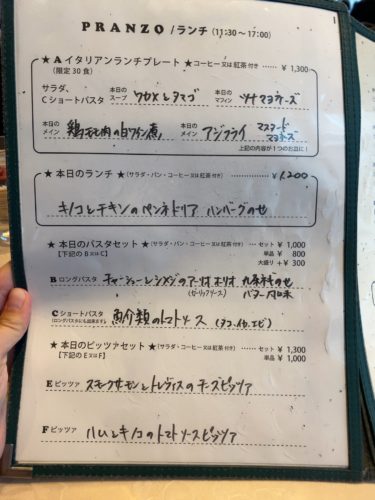 PRANZO /ランチ (11:30～17:00)
★ A イタリアンランチプレート ★コーヒー又は紅茶付き ……… ¥ 1,300
(限定30食)
サラダ、Cショートパスタ 本日のスープ ワカメとタマゴ 本日のマフィン ツナマヨチーズ
本日のメイン 鶏モモ肉の白ワイン煮, 本日のメイン アジフライ マスタードマヨネーズ
上記の内容が1つのお皿に!
★ 本日のランチ ★(サラダ・パン・コーヒー又は紅茶付き) ……… ¥1,200
キノコとチキンのペンネドリア ハンバーグのせ
★ 本日のパスタセット ★(サラダ・パン・コーヒー又は紅茶付き) …… セット ¥ 1,000
【下記のB又はC】 単品 ¥ 800
大盛り +¥ 300
B ロングパスタ チャーシューとシメジのアーリオオリオ 九条ネギのせ
(ガーリックソース) バター風味
C ショートパスタ 魚介類のトマトソース (タコ、イカ、エビ)
(ロングパスタにも出来ます)
★ 本日のピッツァセット ★(サラダ・コーヒー又は紅茶付き) ……… セット ¥ 1,300
【下記のE又はF】 単品 ¥ 1,000
E ピッツァ スモークサーモンとトレヴィスのチーズピッツァ
F ピッツァ ハムとキノコのトマトソースピッツァ